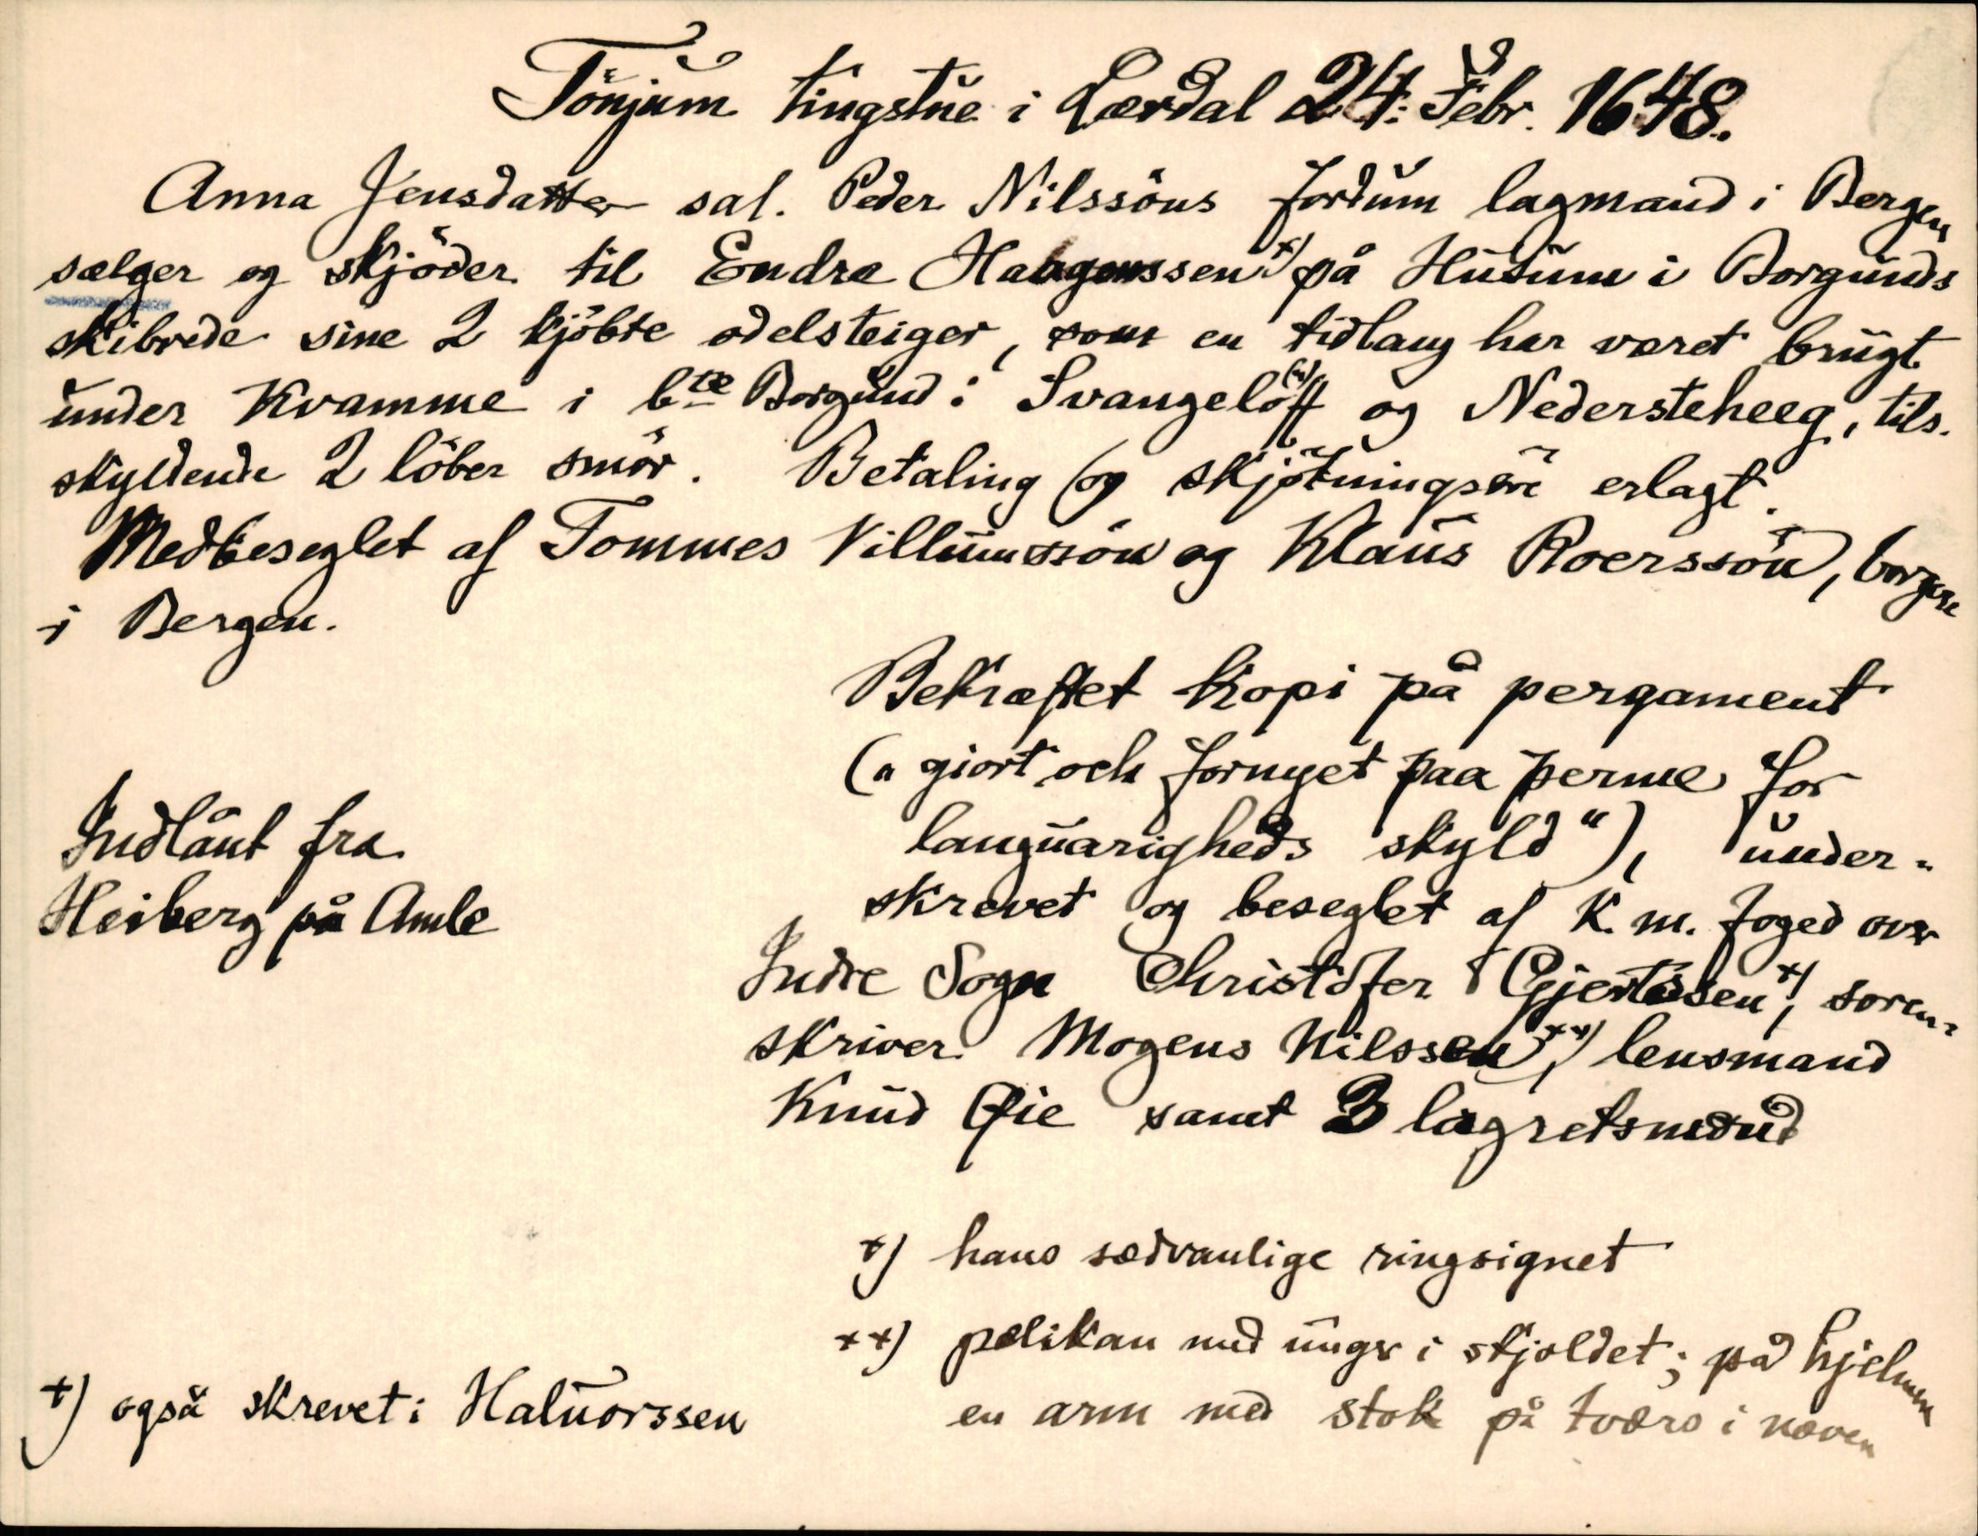 Tönjum tingstue i Lærdal 24: Febr. 1648.
Anna Jensdatter sal. Peder Nilssöns fordum lagmand i Bergen
sælger og skjöder til Endre Haagenssen +) på Husum i Borgunds
skibrede sine 2 kjöbte odelsteiger, som en tidlang har været brugt
under Kvamme i bte Borgund: Svangelöff og Nedersteheeg, tils.
skyldende 2 löber smör. Betaling og skjötningsöre erlagt.
Medbeseglet af Tommes Villumssön og Klaus Roerssön, borgere
i Bergen.
Bekræftet kopi på pergament
(„giort och fornyet paa perme for
languarigheds skyld“), under-
skrevet og beseglet af K. m. foged over
Indre Sogn Christofer Gjertssen x), soren-
skriver Mogens Nilssen xx), lensmand
Knud Øie samt 3 lagretsmænd
Indlånt fra
Heiberg på Amle
x) hans sædvanlige ringsignet
xx) pelikan med unger i skjoldet; på hjelmen
en arm med stok på tværs i næven
+) også skrevet: Haluorssen